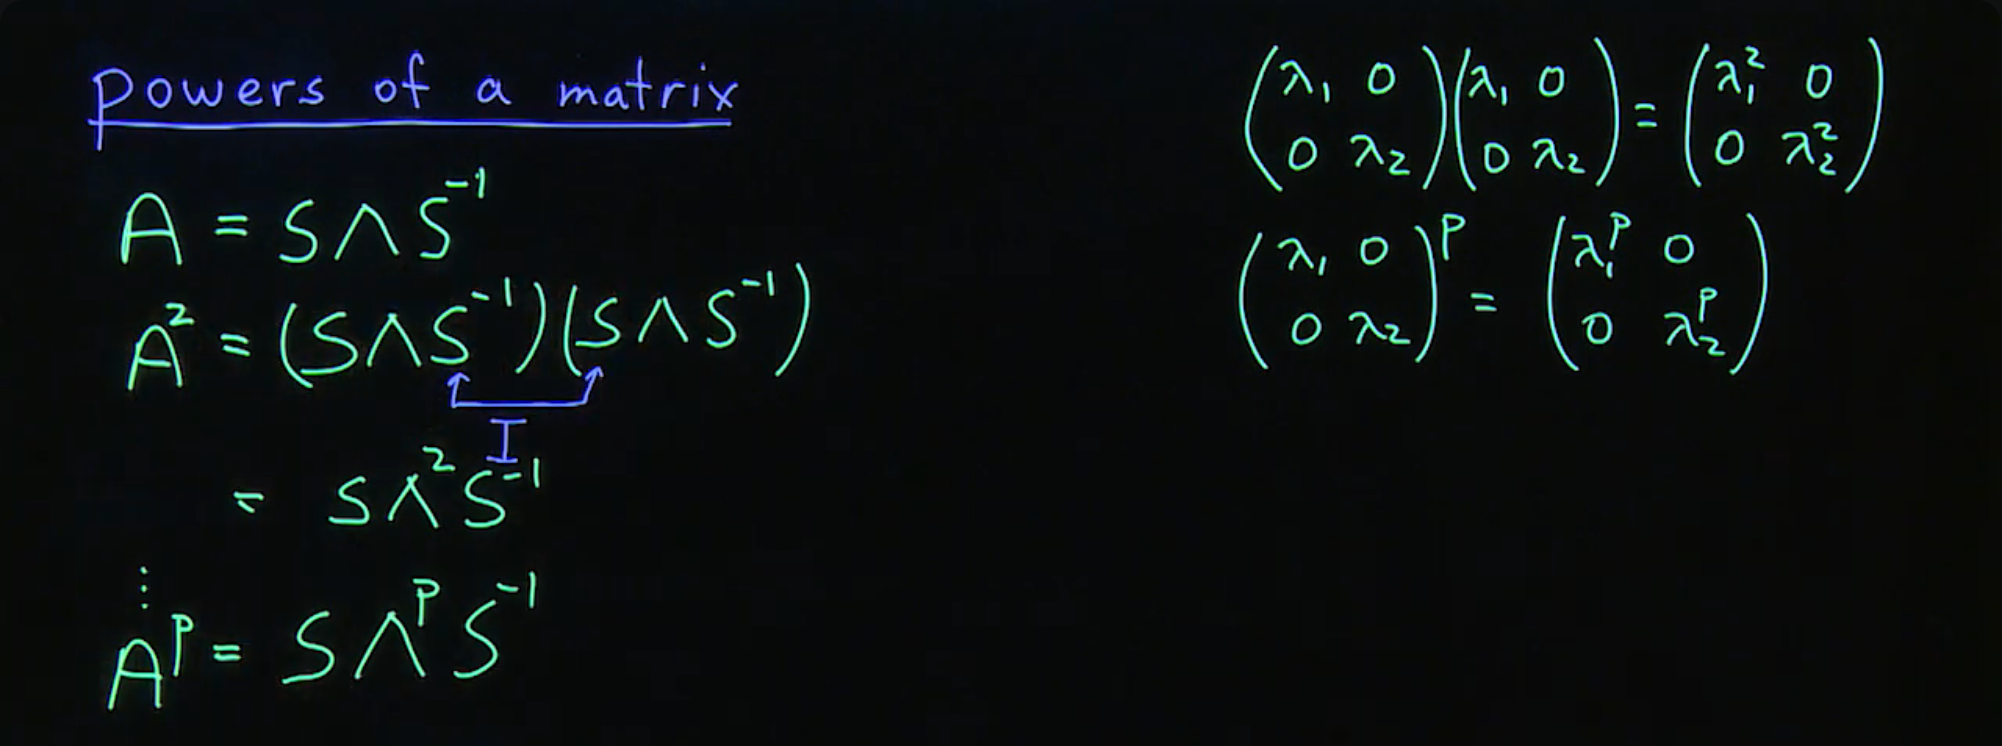 Powers of a matrix
A = SΛS⁻¹
A² = (SΛS⁻¹)(SΛS⁻¹)
I
= SΛ²S⁻¹
⋮
Aᵖ = SΛᵖS⁻¹
(λ₁ 0; 0 λ₂)(λ₁ 0; 0 λ₂) = (λ₁² 0; 0 λ₂²)
(λ₁ 0; 0 λ₂)ᵖ = (λ₁ᵖ 0; 0 λ₂ᵖ)